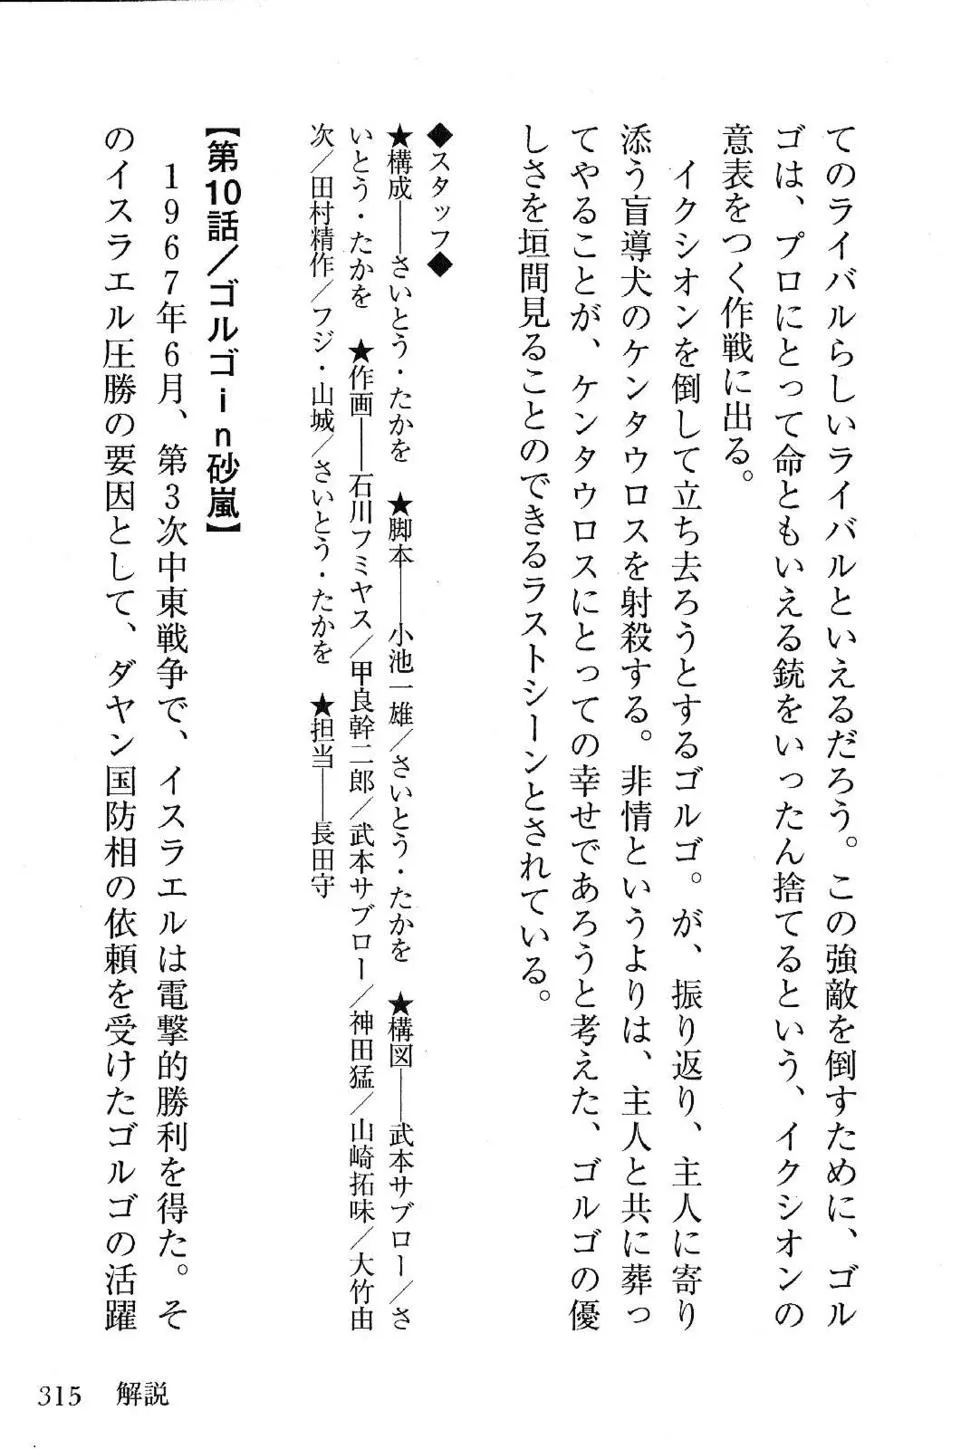 てのライバルらしいライバルといえるだろう。この強敵を倒すために、ゴル
ゴは、プロにとって命ともいえる銃をいったん捨てるという、イクシオンの
意表をつく作戦に出る。
イクシオンを倒して立ち去ろうとするゴルゴ。が、振り返り、主人に寄り
添う盲導犬のケンタウロスを射殺する。非情というよりは、主人と共に葬っ
てやることが、ケンタウロスにとっての幸せであろうと考えた、ゴルゴの優
しさを垣間見ることのできるラストシーンとされている。
◆スタッフ◆
★構成――さいとう・たかを ★脚本――小池一雄/さいとう・たかを ★構図――武本サブロー/さ
いとう・たかを ★作画――石川フミヤス/甲良幹二郎/武本サブロー/神田猛/山崎拓味/大竹由
次/田村精作/フジ・山城/さいとう・たかを ★担当――長田守
【第10話/ゴルゴin砂嵐】
1967年6月、第3次中東戦争で、イスラエルは電撃的勝利を得た。そ
のイスラエル圧勝の要因として、ダヤン国防相の依頼を受けたゴルゴの活躍
315 解説